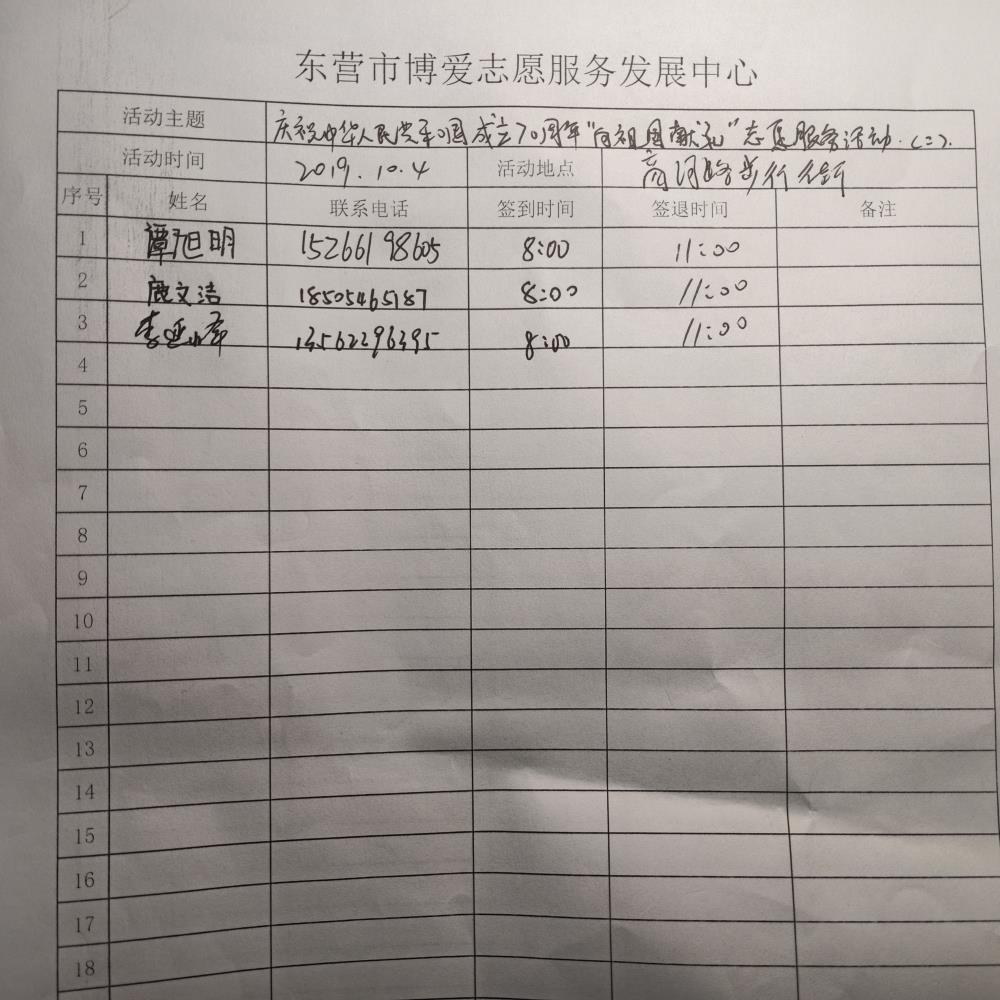 东营市博爱志愿服务发展中心
活动主题 庆祝中华人民共和国成立70周年"向祖国献礼"志愿服务活动.(二).
活动时间 2019.10.4 活动地点 商河路步行街
序号 姓名 联系电话 签到时间 签退时间 备注
1 谭旭明 15266198605 8:00 11:00
2 鹿文洁 18505465787 8:00 11:00
3 李亚 13562296395 8:00 11:00
4
5
6
7
8
9
10
11
12
13
14
15
16
17
18